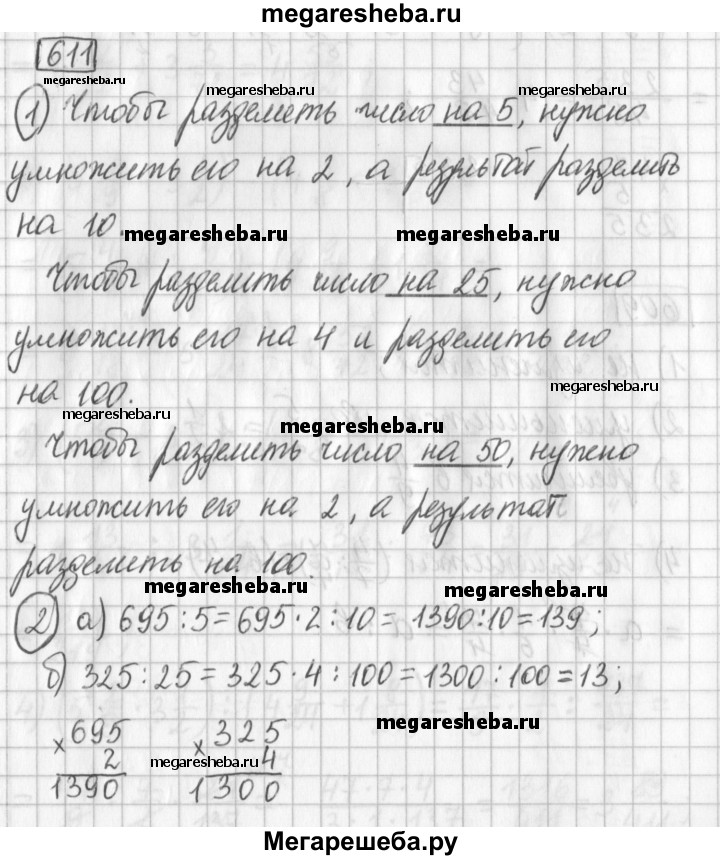 megaresheba.ru
611
megaresheba.ru
megaresheba.ru megaresheba.ru
1) Чтобы разделить число на 5, нужно
умножить его на 2, а результат разделить
на 10.
megaresheba.ru megaresheba.ru
Чтобы разделить число на 25, нужно
умножить его на 4 и разделить его
на 100.
megaresheba.ru
megaresheba.ru
megaresheba.ru
Чтобы разделить число на 50, нужно
умножить его на 2, а результат
разделить на 100.
megaresheba.ru megaresheba.ru
2) а) 695:5=695·2:10=1390:10=139;
б) 325:25=325·4:100=1300:100=13;
megaresheba.ru
× 695 × 325
2 megaresheba.ru 4
1390 1300
Мегарешеба.ру